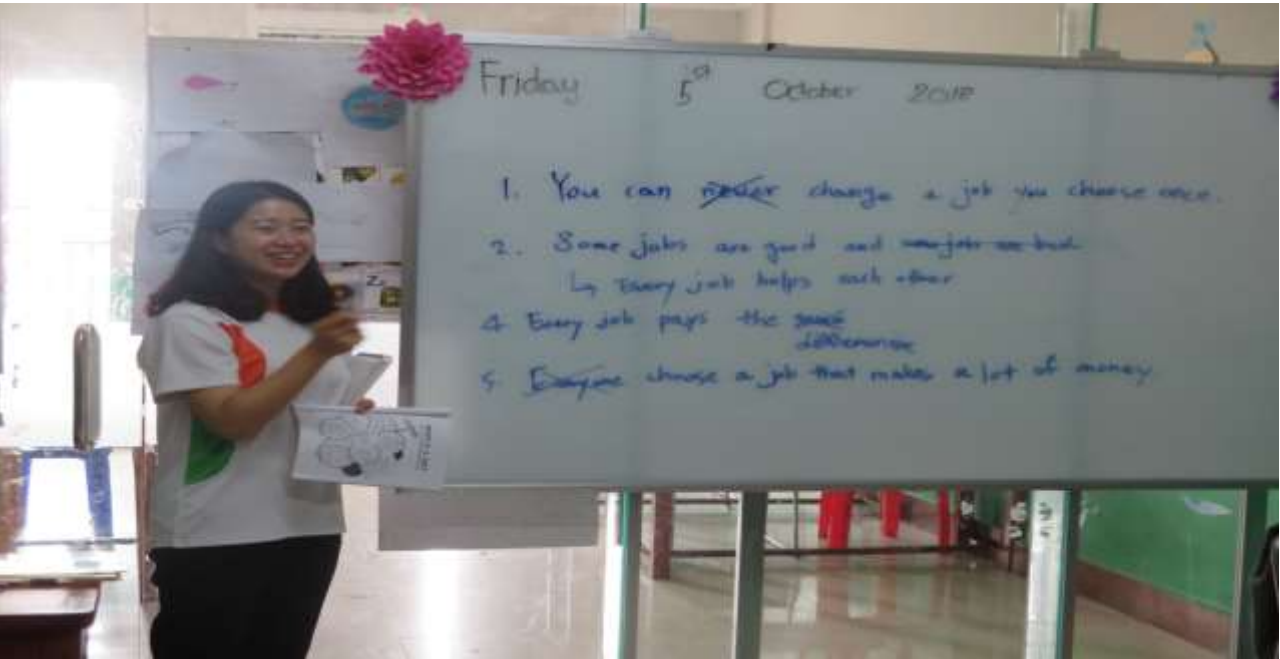 Friday 5th October 2018
1. You can never change a job you choose once.
2. Some jobs are good and some jobs are bad.
↳ Every job helps each other
4 Every job pays the same
difference
5. Everyone choose a job that makes a lot of money